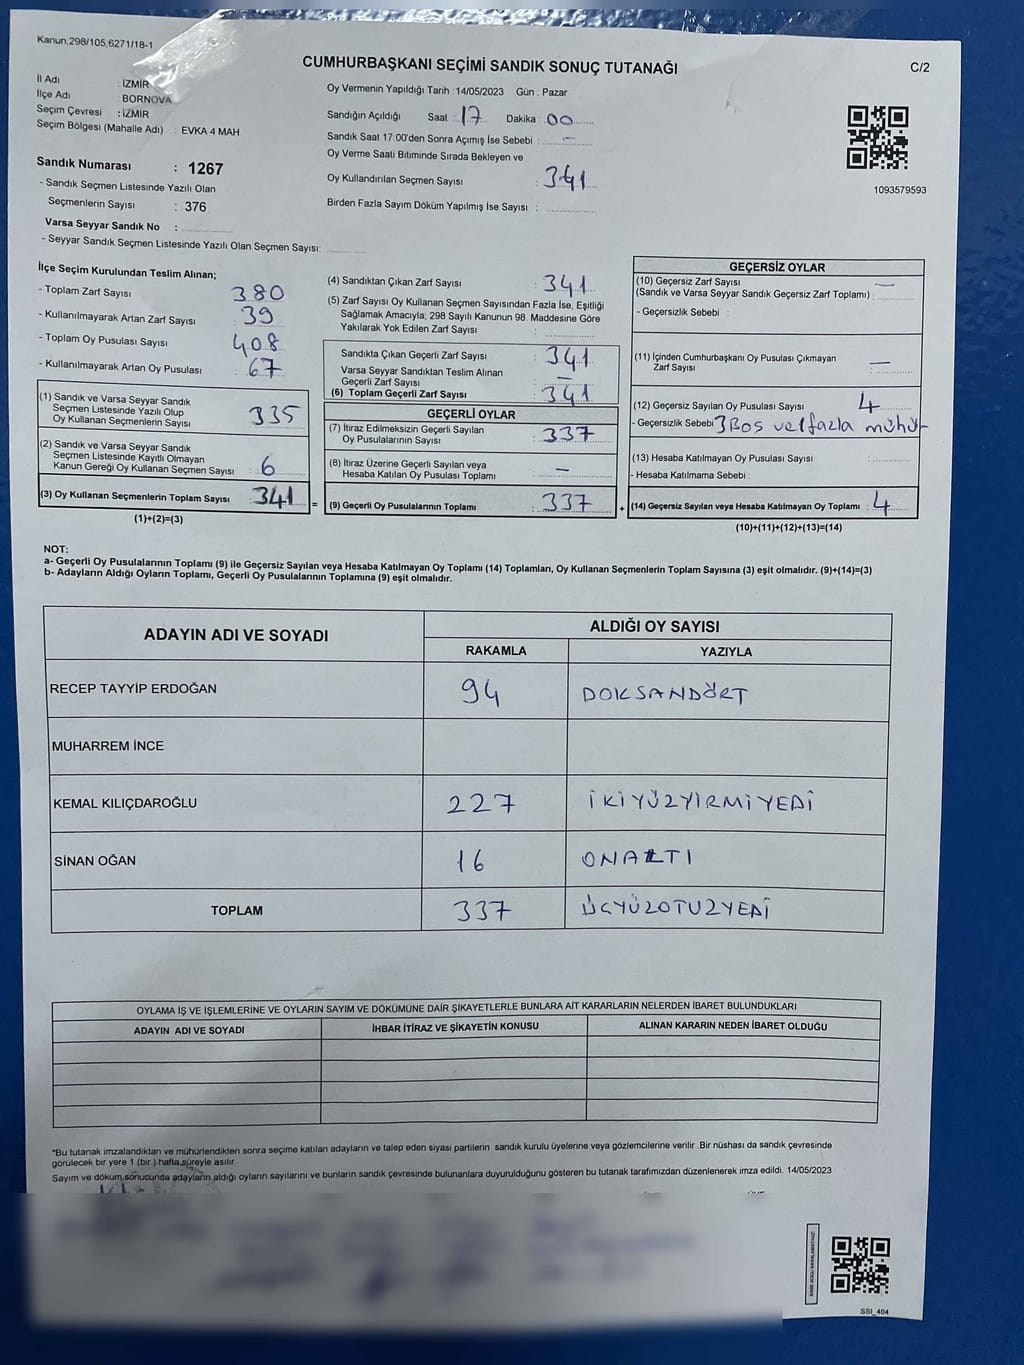 Kanun,298/105,6271/18-1
CUMHURBAŞKANI SEÇİMİ SANDIK SONUÇ TUTANAĞI
C/2
İl Adı : İZMİR
İlçe Adı : BORNOVA
Seçim Çevresi : İZMİR
Seçim Bölgesi (Mahalle Adı) : EVKA 4 MAH
Sandık Numarası : 1267
- Sandık Seçmen Listesinde Yazılı Olan
Seçmenlerin Sayısı : 376
Varsa Seyyar Sandık No :
- Seyyar Sandık Seçmen Listesinde Yazılı Olan Seçmen Sayısı:
Oy Vermenin Yapıldığı Tarih :14/05/2023 Gün : Pazar
Sandığın Açıldığı Saat : 17 Dakika : 00
Sandık Saat 17:00'den Sonra Açımış İse Sebebi : —
Oy Verme Saati Bitiminde Sırada Bekleyen ve
Oy Kullandırılan Seçmen Sayısı : 341
Birden Fazla Sayım Döküm Yapılmış İse Sayısı :
1093579593
İlçe Seçim Kurulundan Teslim Alınan;
- Toplam Zarf Sayısı : 380
- Kullanılmayarak Artan Zarf Sayısı : 39
- Toplam Oy Pusulası Sayısı : 408
- Kullanılmayarak Artan Oy Pusulası : 67
(1) Sandık ve Varsa Seyyar Sandık
Seçmen Listesinde Yazılı Olup
Oy Kullanan Seçmenlerin Sayısı : 335
(2) Sandık ve Varsa Seyyar Sandık
Seçmen Listesinde Kayıtlı Olmayan
Kanun Gereği Oy Kullanan Seçmen Sayısı : 6
(3) Oy Kullanan Seçmenlerin Toplam Sayısı : 341
(1)+(2)=(3)
(4) Sandıktan Çıkan Zarf Sayısı : 341
(5) Zarf Sayısı Oy Kullanan Seçmen Sayısından Fazla İse, Eşitliği
Sağlamak Amacıyla; 298 Sayılı Kanunun 98. Maddesine Göre
Yakılarak Yok Edilen Zarf Sayısı :
Sandıkta Çıkan Geçerli Zarf Sayısı : 341
Varsa Seyyar Sandıktan Teslim Alınan
Geçerli Zarf Sayısı : —
(6) Toplam Geçerli Zarf Sayısı : 341
GEÇERLİ OYLAR
(7) İtiraz Edilmeksizin Geçerli Sayılan
Oy Pusulalarının Sayısı : 337
(8) İtiraz Üzerine Geçerli Sayılan veya
Hesaba Katılan Oy Pusulası Toplamı : —
= (9) Geçerli Oy Pusulalarının Toplamı : 337
GEÇERSİZ OYLAR
(10) Geçersiz Zarf Sayısı —
(Sandık ve Varsa Seyyar Sandık Geçersiz Zarf Toplamı) :
- Geçersizlik Sebebi :
(11) İçinden Cumhurbaşkanı Oy Pusulası Çıkmayan
Zarf Sayısı : —
(12) Geçersiz Sayılan Oy Pusulası Sayısı : 4
- Geçersizlik Sebebi : 3 Boş ve 1 fazla mühür
(13) Hesaba Katılmayan Oy Pusulası Sayısı :
- Hesaba Katılmama Sebebi :
+ (14) Geçersiz Sayılan veya Hesaba Katılmayan Oy Toplamı : 4
(10)+(11)+(12)+(13)=(14)
NOT:
a- Geçerli Oy Pusulalarının Toplamı (9) ile Geçersiz Sayılan veya Hesaba Katılmayan Oy Toplamı (14) Toplamları, Oy Kullanan Seçmenlerin Toplam Sayısına (3) eşit olmalıdır. (9)+(14)=(3)
b- Adayların Aldığı Oyların Toplamı, Geçerli Oy Pusulalarının Toplamına (9) eşit olmalıdır.
ADAYIN ADI VE SOYADI
ALDIĞI OY SAYISI
RAKAMLA YAZIYLA
RECEP TAYYİP ERDOĞAN 94 DOKSANDÖRT
MUHARREM İNCE
KEMAL KILIÇDAROĞLU 227 İKİYÜZYİRMİYEDİ
SİNAN OĞAN 16 ONALTI
TOPLAM 337 ÜÇYÜZOTUZYEDİ
OYLAMA İŞ VE İŞLEMLERİNE VE OYLARIN SAYIM VE DÖKÜMÜNE DAİR ŞİKAYETLERLE BUNLARA AİT KARARLARIN NELERDEN İBARET BULUNDUKLARI
ADAYIN ADI VE SOYADI İHBAR İTİRAZ VE ŞİKAYETİN KONUSU ALINAN KARARIN NEDEN İBARET OLDUĞU
*Bu tutanak imzalandıktan ve mühürlendikten sonra seçime katılan adayların ve talep eden siyasi partilerin sandık kurulu üyelerine veya gözlemcilerine verilir .Bir nüshası da sandık çevresinde
görülecek bir yere 1 (bir ) hafta süreyle asılır.
Sayım ve döküm sonucunda adayların aldığı oyların sayılarını ve bunların sandık çevresinde bulunanlara duyurulduğunu gösteren bu tutanak tarafımızdan düzenlenerek imza edildi. 14/05/2023
SSI_404